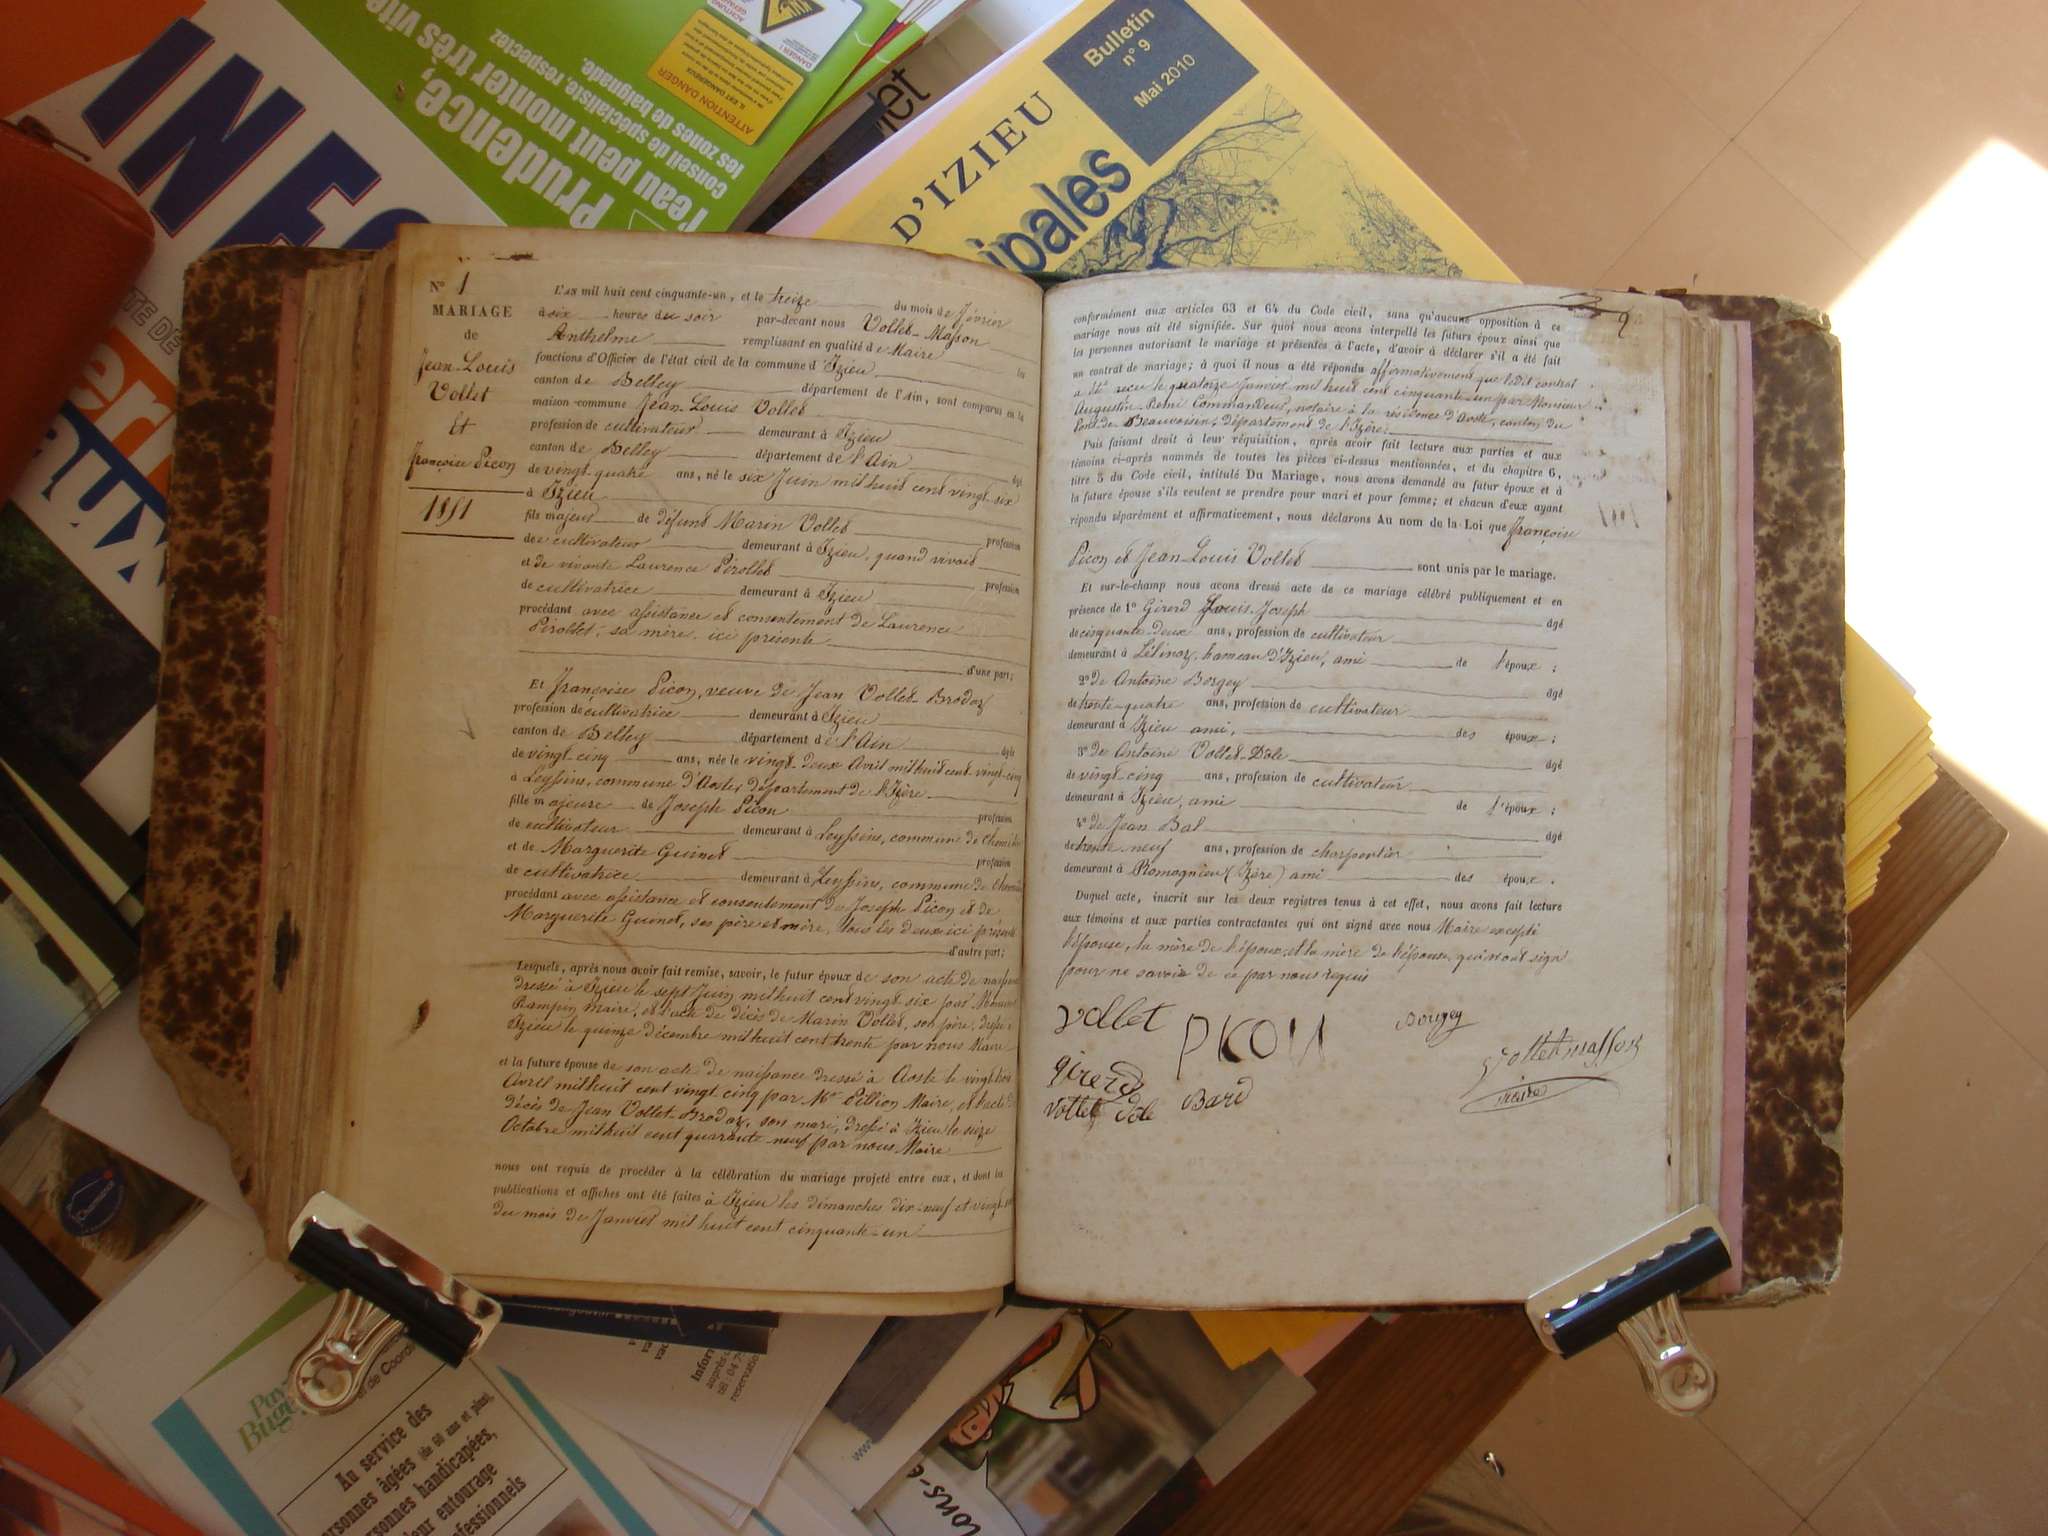 INFO
Prudence,
l'eau peut monter très vite
conseil de spécialiste, respectez
les zones de baignade.
ATTENTION DANGER
Bulletin
n° 9
Mai 2010
D'IZIEU
ipales
N° 1
MARIAGE
de
Jean-Louis
Vollet
Et
françoise Picon
1851
L'AN mil huit cent cinquante-un, et le treize du mois de février
à six heures du soir par-devant nous Vollet-Masson
Anthelme remplissant en qualité de Maire les
fonctions d'Officier de l'état civil de la commune d'Izieu
canton de Belley département de l'Ain, sont comparus en la
maison-commune Jean-Louis Vollet
profession de cultivateur demeurant à Izieu
canton de Belley département de l'Ain âgé
de vingt-quatre ans, né le six Juin mil huit cent vingt-six
à Izieu
fils majeur de défunt Marin Vollet profession
de cultivateur demeurant à Izieu, quand vivait
et de vivante Laurence Pérollet profession
de cultivatrice demeurant à Izieu
procédant avec assistance et consentement de Laurence
Pérollet, sa mère, ici présente
d'une part;
Et françoise Picon, veuve de Jean Vollet-Brodaz
profession de cultivatrice demeurant à Izieu
canton de Belley département de l'Ain âgée
de vingt-cinq ans, née le vingt-deux Avril mil huit cent vingt-cinq
à Leyssins, commune d'Aoste, département de l'Izère
fille majeure de Joseph Picon profession
de cultivateur demeurant à Leyssins, commune de
et de Marguerite Guinet profession
de cultivatrice demeurant à Leyssins, commune de
procédant avec assistance et consentement de Joseph Picon et de
Marguerite Guinet, ses père et mère, tous les deux ici présents
d'autre part;
Lesquels, après nous avoir fait remise, savoir, le futur époux de son acte de naissance
dressé à Izieu le sept Juin mil huit cent vingt-six par
Rampin Maire, et l'acte de décès de Marin Vollet, son père, dressé à
Izieu le quinze décembre mil huit cent trente par nous Maire
et la future épouse de son acte de naissance dressé à Aoste le vingt-trois
Avril mil huit cent vingt-cinq par Mr Pillion Maire, et l'acte de
décès de Jean Vollet-Brodaz, son mari, dressé à Izieu le seize
Octobre mil huit cent quarante-neuf par nous Maire
nous ont requis de procéder à la célébration du mariage projeté entre eux, et dont les
publications et affiches ont été faites à Izieu les dimanches dix-neuf et vingt-six
du mois de Janvier mil huit cent cinquante-un
2
conformément aux articles 63 et 64 du Code civil, sans qu'aucune opposition à ce
mariage nous ait été signifiée. Sur quoi nous avons interpellé les futurs époux ainsi que
les personnes autorisant le mariage et présentes à l'acte, d'avoir à déclarer s'il a été fait
un contrat de mariage; à quoi il nous a été répondu affirmativement que ledit contrat
a été reçu le quatorze Janvier mil huit cent cinquante-un par Monsieur
Augustin-Remi Commandeur, notaire à la résidence d'Aoste, canton du
Pont-de-Beauvoisin, département de l'Izère.
Puis faisant droit à leur réquisition, après avoir fait lecture aux parties et aux
témoins ci-après nommés de toutes les pièces ci-dessus mentionnées, et du chapitre 6,
titre 5 du Code civil, intitulé Du Mariage, nous avons demandé au futur époux et à
la future épouse s'ils veulent se prendre pour mari et pour femme; et chacun d'eux ayant
répondu séparément et affirmativement, nous déclarons Au nom de la Loi que françoise
Picon et Jean-Louis Vollet sont unis par le mariage.
Et sur-le-champ nous avons dressé acte de ce mariage célébré publiquement et en
présence de 1° Girerd Louis-Joseph âgé
de cinquante-deux ans, profession de cultivateur
demeurant à Lélinaz, hameau d'Izieu, ami de l'époux;
2° de Antoine Borgey âgé
de trente-quatre ans, profession de cultivateur
demeurant à Izieu ami, des époux;
3° de Antoine Vollet-Dole âgé
de vingt-cinq ans, profession de cultivateur
demeurant à Izieu, ami de l'époux;
4° de Jean Bal âgé
de trente-neuf ans, profession de charpentier
demeurant à Romagnieu (Izère) ami des époux.
Duquel acte, inscrit sur les deux registres tenus à cet effet, nous avons fait lecture
aux témoins et aux parties contractantes qui ont signé avec nous Maire excepté
l'épouse, la mère de l'époux, et la mère de l'épouse, qui n'ont signé
pour ne savoir de ce par nous requis
vollet
PKON
Bourgey
girerd
vollet dole
Bard
Vollet massson
maire
Au service des
personnes âgées (de 60 ans et plus),
personnes handicapées,
leur entourage